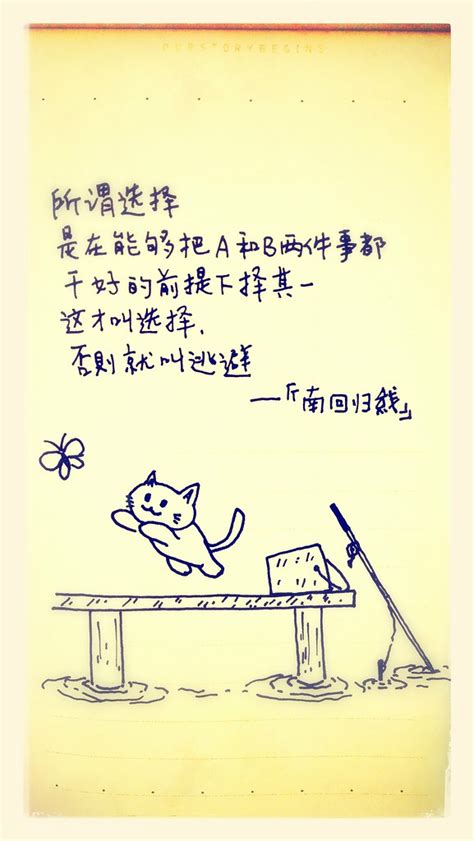 POPSTORYBEGINS
所谓选择
是在能够把A和B两件事都
干好的前提下择其一
这才叫选择.
否则就叫逃避
—「南回归线」